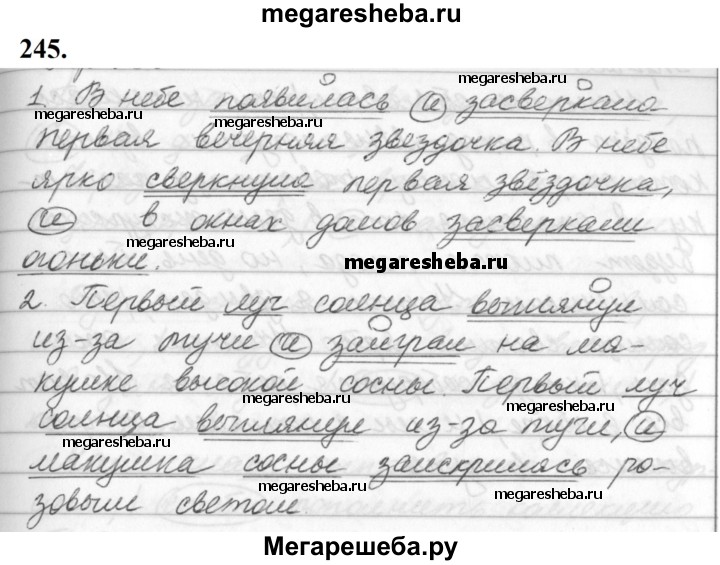 megaresheba.ru
245.
1. В небе появилась и засверкала
megaresheba.ru
megaresheba.ru
первая вечерняя звездочка. В небе
megaresheba.ru
ярко сверкнула первая звёздочка,
megaresheba.ru
и в окнах домов засверкали
megaresheba.ru
огоньки.
megaresheba.ru
2. Первый луч солнца выглянул
megaresheba.ru
из-за тучи и заиграл на ма-
megaresheba.ru
кушке высокой сосны. Первый луч
megaresheba.ru
солнца выглянул из-за тучи, и
megaresheba.ru
макушка сосны заискрилась ро-
megaresheba.ru
зовым светом.
megaresheba.ru
Мегарешеба.ру